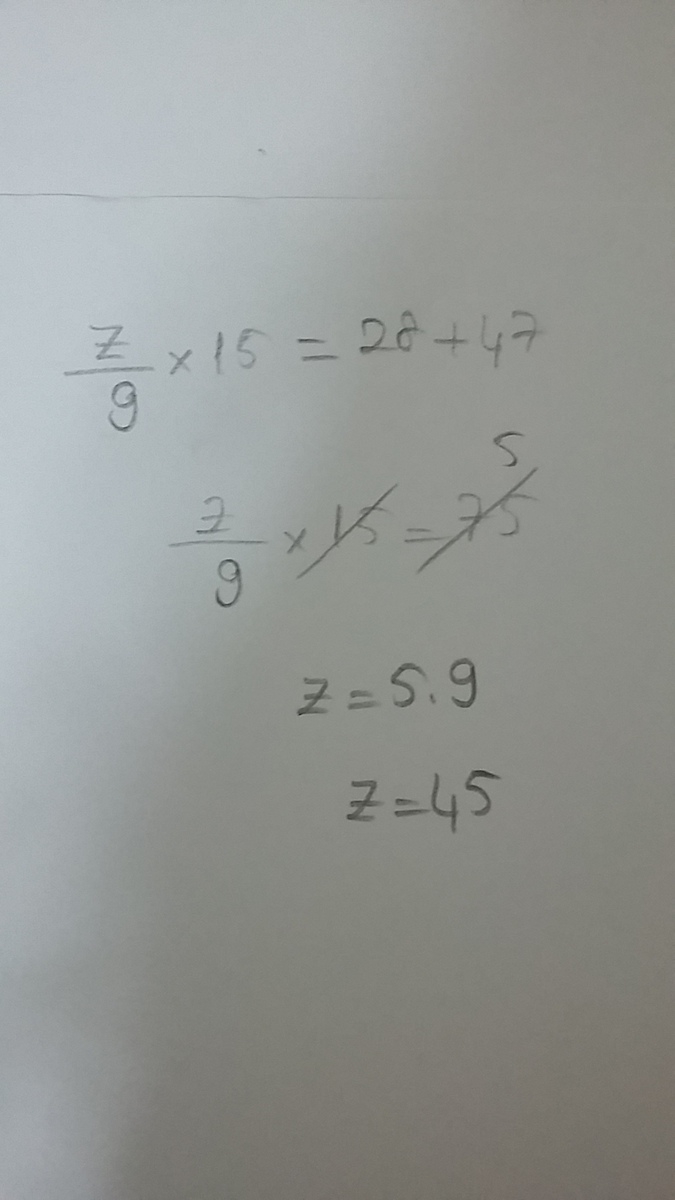 z/9 × 15 = 28 + 47
z/9 × 15 = 75 5
z = 5.9
z = 45